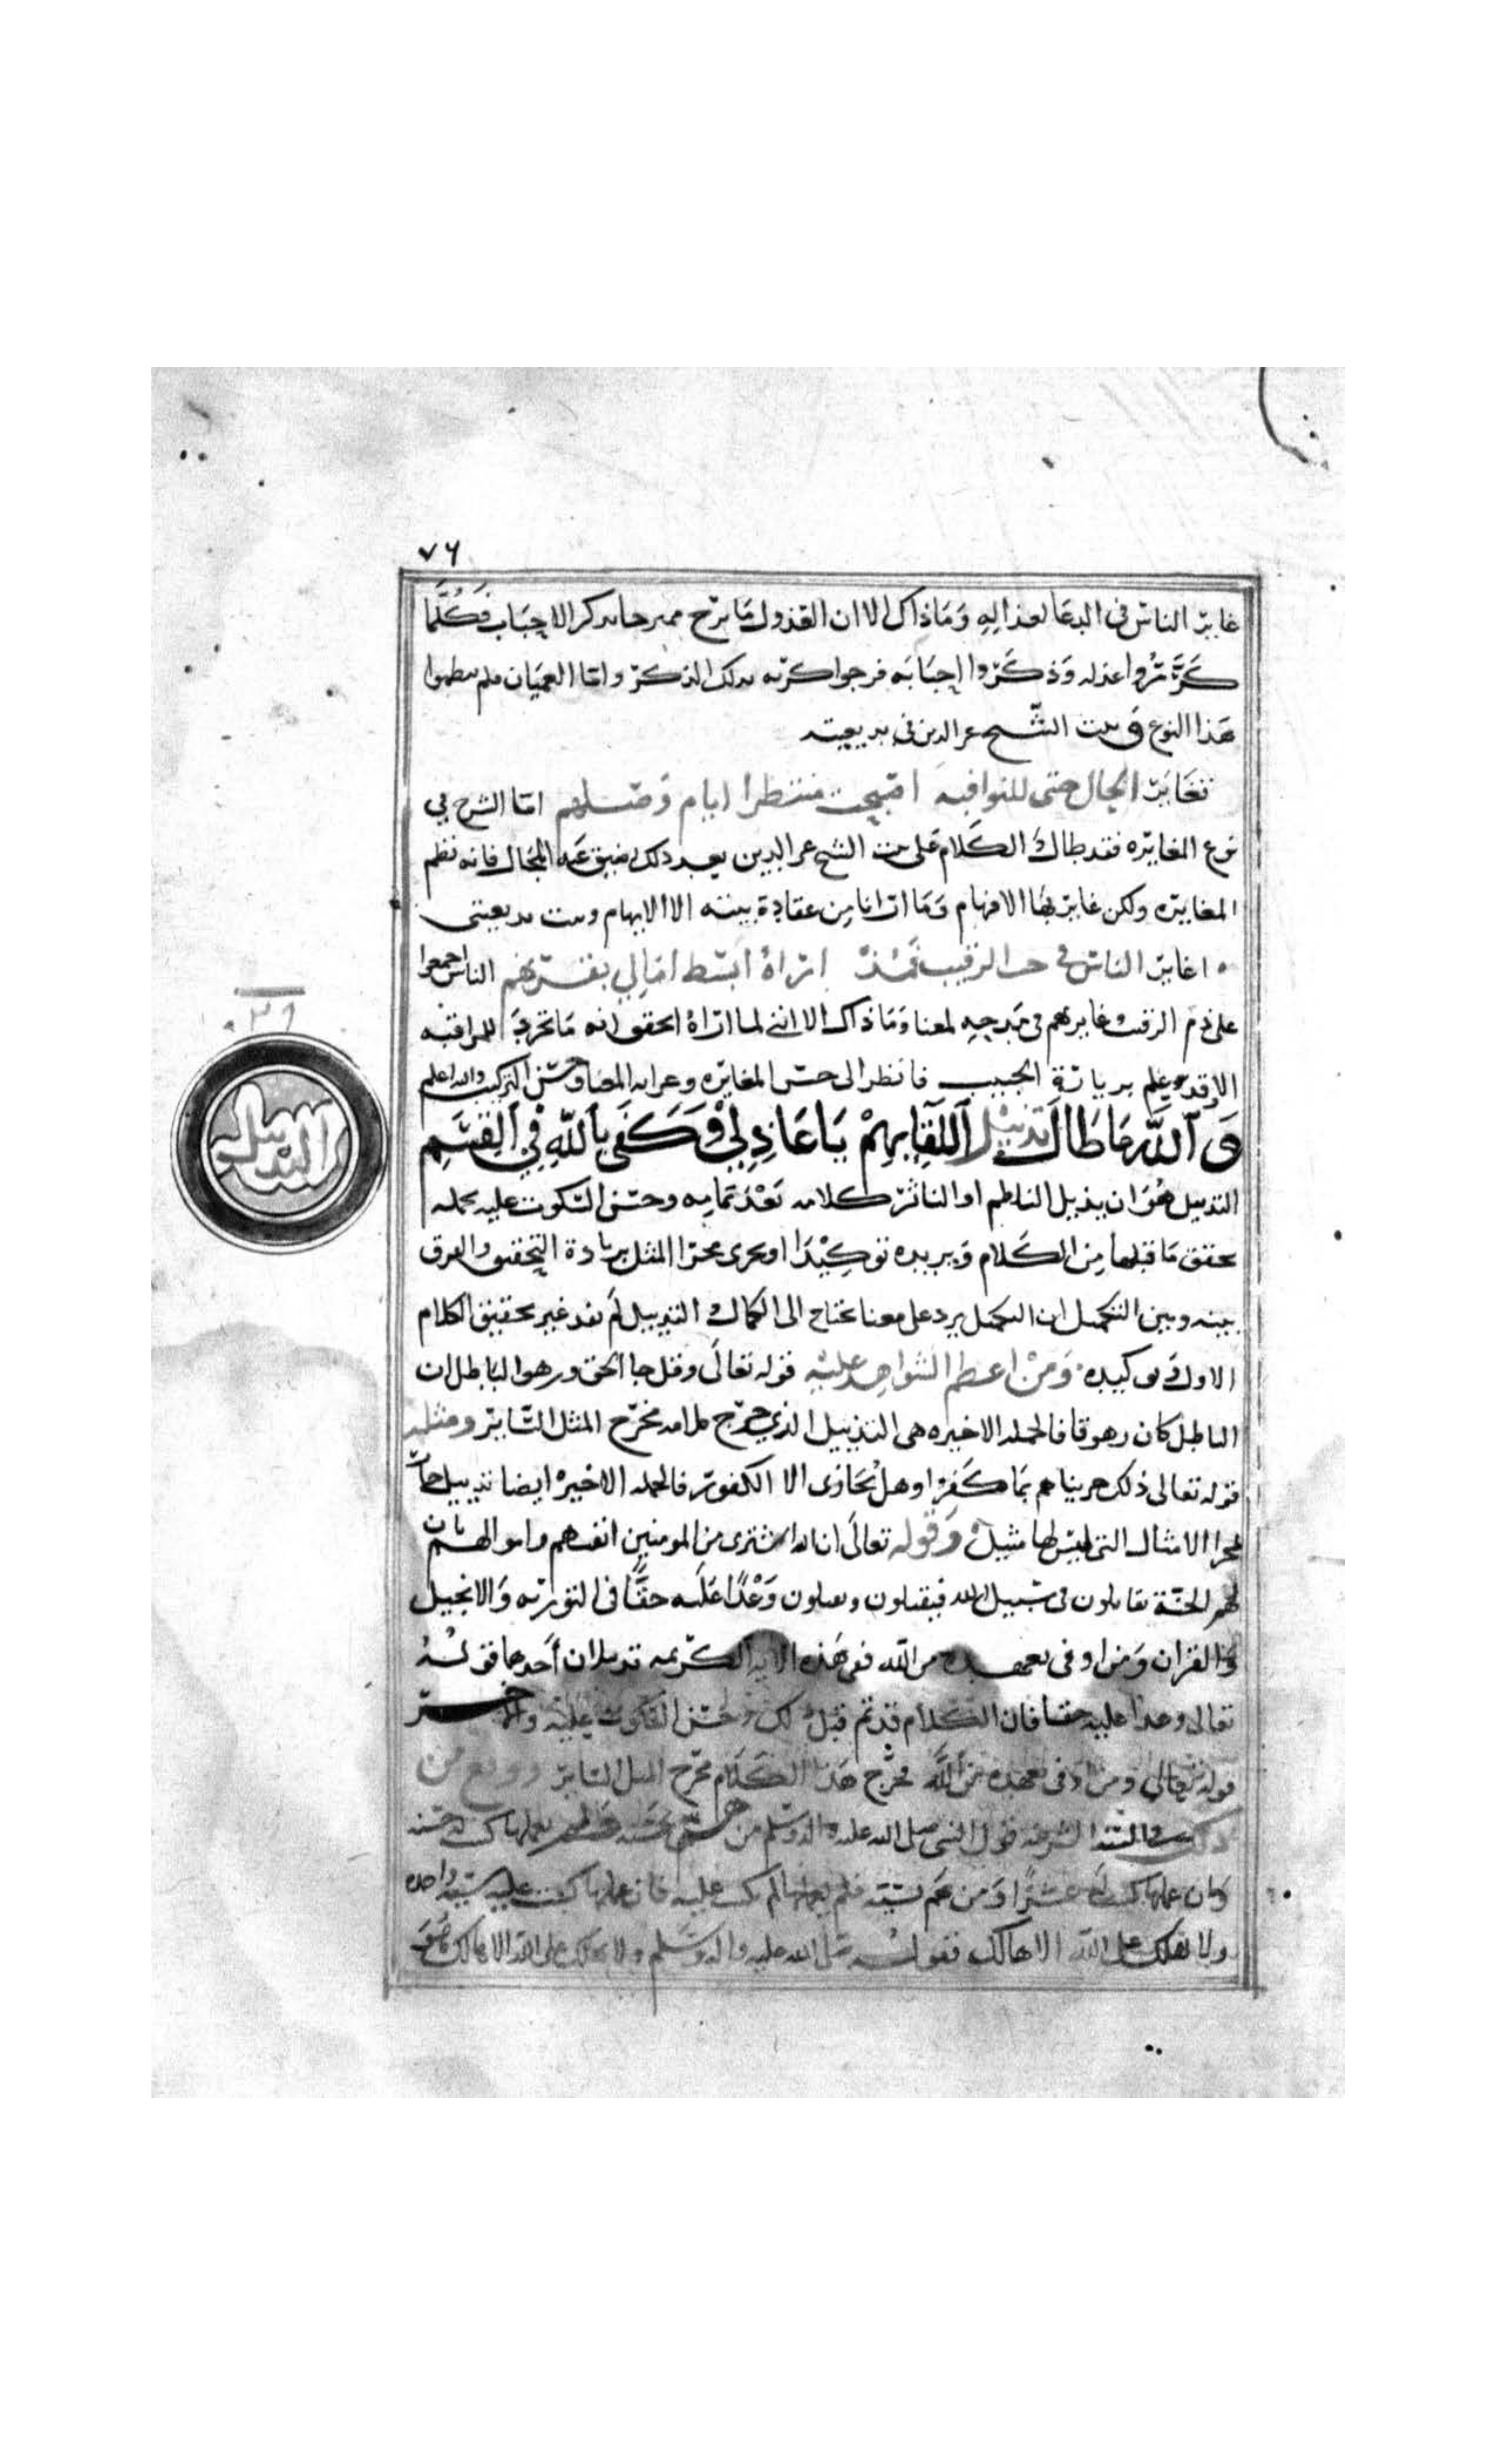 ٧٦
غاير الناس في الدعا لعذاله وما ذاك الا ان العذول ما برح ممرحا بذكر الاحباب فكلما
كرروا عذله وذكروا احبابه فرجوا كربه بذلك الذكر واما العميان فلم ينظموا
هذا النوع وبيت الشيخ عز الدين في بديعيته
تغاير الحال حتى للنوافيه اصبحت منتظرا ايام وصلهم اما الشرح في
نوع المغايره فقد طال الكلام على بيت الشيخ عز الدين بعد ذلك ضيق عنه المجال فانه نظم
المغايره ولكن غاير بها الافهام وما ارانا من عقادة بيته الا الابهام وبيت بديعيتي
اغاير الناس في حب الرقيب فمذ اراه ابسط امالي بقربهم الناس اجمعوا
على ذم الرقيب وغايرتهم في مدحه لمعنا وما ذاك الا انني لما اراه اتحقق انه ما تحرى للمراقبه
الا وقد علم بزيارة الحبيب فانظر الى حسن المغايره وغرابه المعنا وحسن التركيب والله اعلم
٢٦
التذييل
والله ما طال تذييل اللقا بهم يا عاذلي وكفى بالله في القسم
التذييل هو ان يذيل الناظم او الناثر كلامه بعد تمامه وحسن السكوت عليه بجمله
تحقق ما قبلها من الكلام وتزيده توكيدا وتجري مجرا المثل بزيادة التحقيق والفرق
بينه وبين التكميل ان التكميل يرد على معنا يحتاج الى الكمال والتذييل لم يفد غير تحقيق الكلام
الاول وتوكيده ومن اعظم الشواهد عليه قوله تعالى وقل جا الحق وزهق الباطل ان
الباطل كان زهوقا فالجمله الاخيره هي التذييل الذي خرج كلامه مخرج المثل السائر ومثله
قوله تعالى ذلك جزيناهم بما كفروا وهل نجازى الا الكفور فالجمله الاخيره ايضا تذييل جات
مجرا الامثال التي ليس لها مثيل وقوله تعالى ان الله اشترى من المومنين انفسهم واموالهم بان
لهم الجنة يقاتلون في سبيل الله فيقتلون ويقتلون وعدا عليه حقا في التورته والانجيل
والقران ومن اوفى بعهده من الله ففي هذه الايه الكريمه تذييلان أحدهما قوله
تعالى وعدا عليه حقا فان الكلام قد تم قبل ذلك وحسن السكوت عليه والاخر
قوله تعالى ومن اوفى بعهده من الله مخرج هذا الكلام مخرج المثل السائر ووقع من
ذلك في السنه الشريفه قول النبي صلى الله عليه واله وسلم من هم بحسنه فلم يعملها كتبت له حسنه
وان عملها كتبت له عشرا ومن هم بسيئه فلم يعملها لم تكتب عليه فان عملها كتبت عليه سيئه واحده
ولا يهلك على الله الا هالك فقوله صلى الله عليه واله وسلم ولا يهلك على الله الا هالك